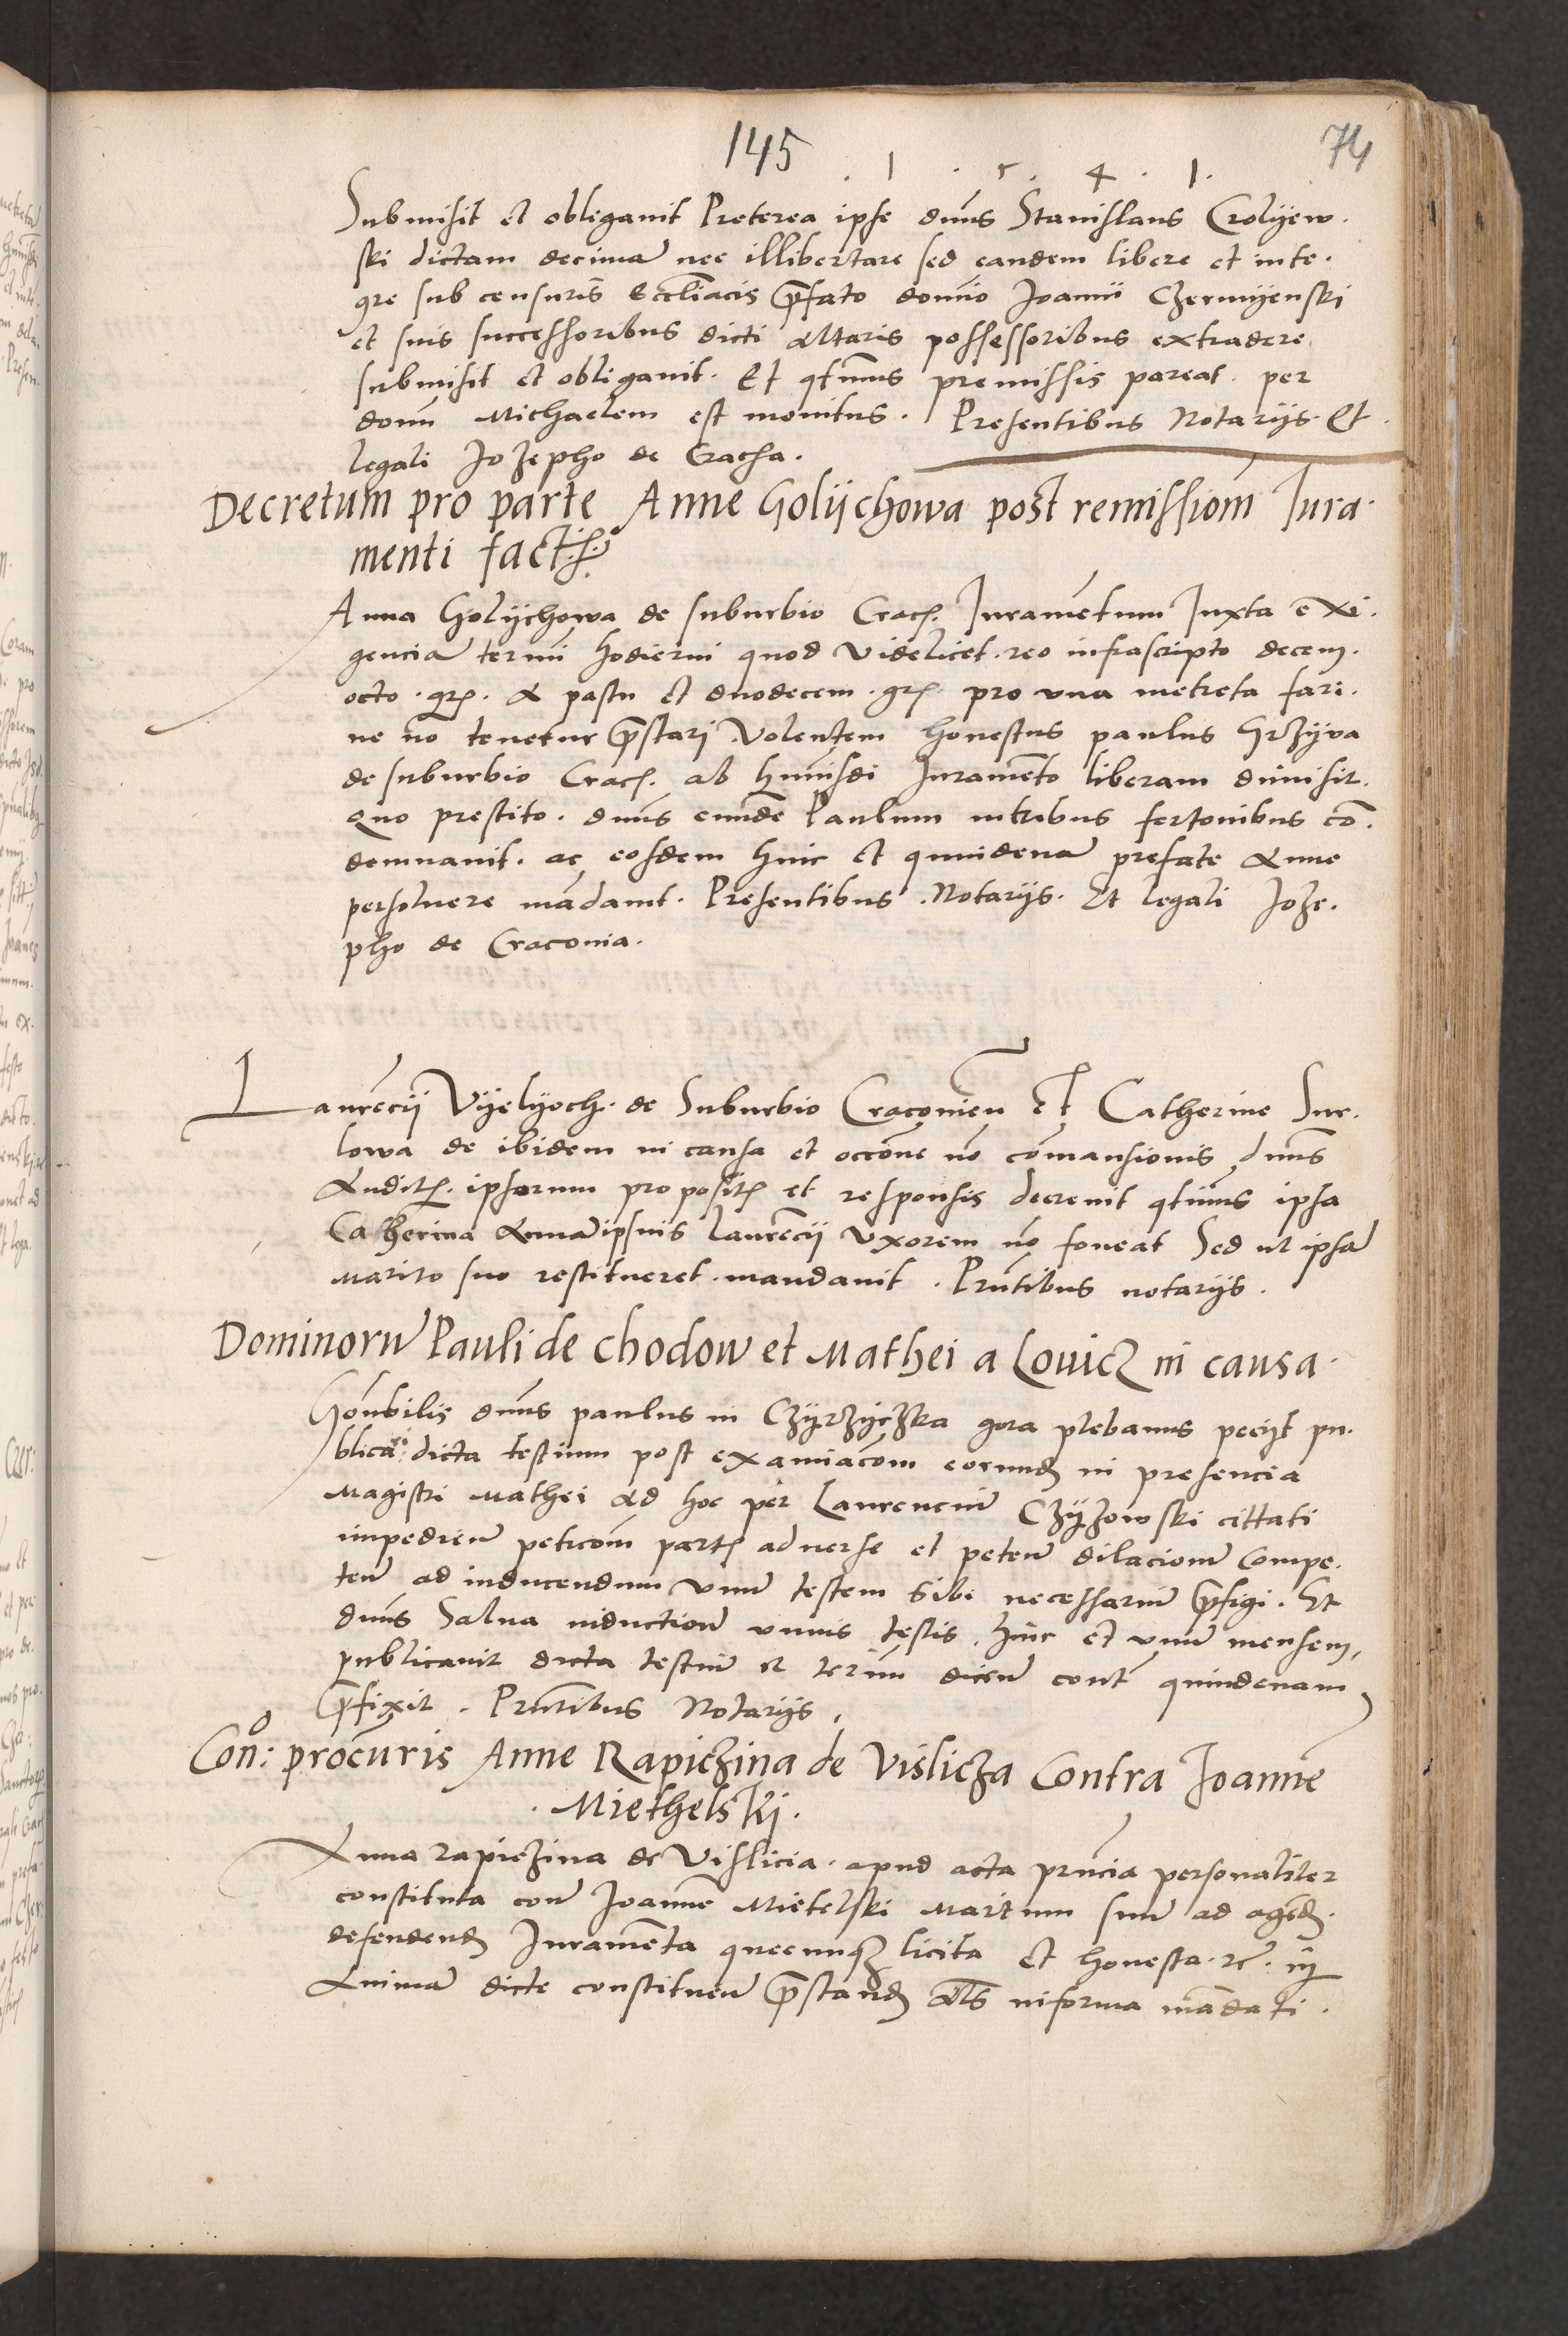 145
74
. 1 . 5 . 4 . 1 .
Submisit et obligavit Preterea ipse dnūs Stanislaus Crolyew.
ski dictam decimā nec illibertare sed eandem libere et inte.
gre sub censuris Eccliacis p̄fato domīo Joanni Czermyenski
et suis successoribus dicti altaris possessoribus extradere
submisit et obligavit. Et qtenus premissis pareat. per
domū Michaelem est monitus. Presentibus Notarijs. Et
legali Jozepho de Cracha.
Decretum pro parte Anne Golychowa post remissiom̄ Jura.
menti fact.
Anna Golychowa de suburbio Crac. Juramētum Juxta exi.
genciā termī hodierni quod Videlicet. reo infrascripto decem.
octo. gr. a pastu et duodecem. gr. pro una metreta fari.
ne nō tenetur p̄stari Volentem honestus paulus Grzyva
de suburbio Crac. ab hmōi Juramēto liberam dimisit.
quo prestito. dnūs eundē Paulum in tribus fertonibus cō.
demnavit. ac eosdem hinc et quindenā prefate Anne
persolvere mādavit. Presentibus. Notarijs. Et legali Joze.
pho de Cracovia.
Laurēcij Vyelyoch. de Suburbio Cracovieñ et Catherine Sur.
lowa de ibidem in causa et occōne nō cōmansionis dnūs
Audit. ipsorum proposit. et responsis decrevit qtenus ipsa
Catherina Annā ipsius Laurēcij Uxorem nō foveat Sed ut ipsā
marito suo restitueret. mandavit. Prn̄tibus notarijs.
Dominorū Pauli de Chodow et Mathei a Lovicz in causa.
Hōnbilis dnūs paulus in Czyrzyczka gora plebanus pecijt pu.
blicari dicta testium post examiacōm eorund. in presencia
Magistri Mathei ad hoc per Laurencium Czyzowski cittati
impedieñ peticōm part. adverse et peteñ dilacionē compe.
teñ ad inducendum unū testem sibi necessariū p̄figi. Et
dnūs Salva inductionē unius testis. hinc et unū mensem,
publicavit dicta testiū et terīm diceñ cont̄ quindenam
p̄fixit. Prn̄tibus Notarijs.
Con: procuris Anne Rapiczina de Vislicza Contra Joannē
. Miethelski.
Anna Rapiczina de Vislicia. apud acta prn̄cia personaliter
constituta con̄ Joannē Mietelski Maritum suū ad agēd.
defendend. Juramēta quecunq licita et honesta. rc. in
Animā dicte constitueñ p̄stand. als̄ in forma mādati.